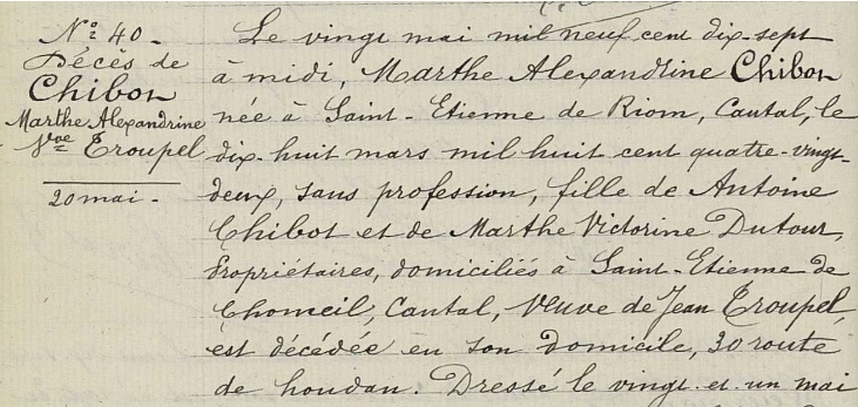 N° 40 -
Décès de
Chibon
Marthe Alexandrine
Vve Troupel
20 mai -
Le vingt mai mil neuf cent dix-sept
à midi, Marthe Alexandrine Chibon
née à Saint-Etienne de Riom, Cantal, le
dix-huit mars mil huit cent quatre-vingt-
deux, sans profession, fille de Antoine
Chibot et de Marthe Victorine Dutour,
propriétaires, domiciliés à Saint-Etienne de
Chomeil, Cantal, Veuve de Jean Troupel,
est décédée en son domicile, 30 route
de houdan. Dressé le vingt et un mai